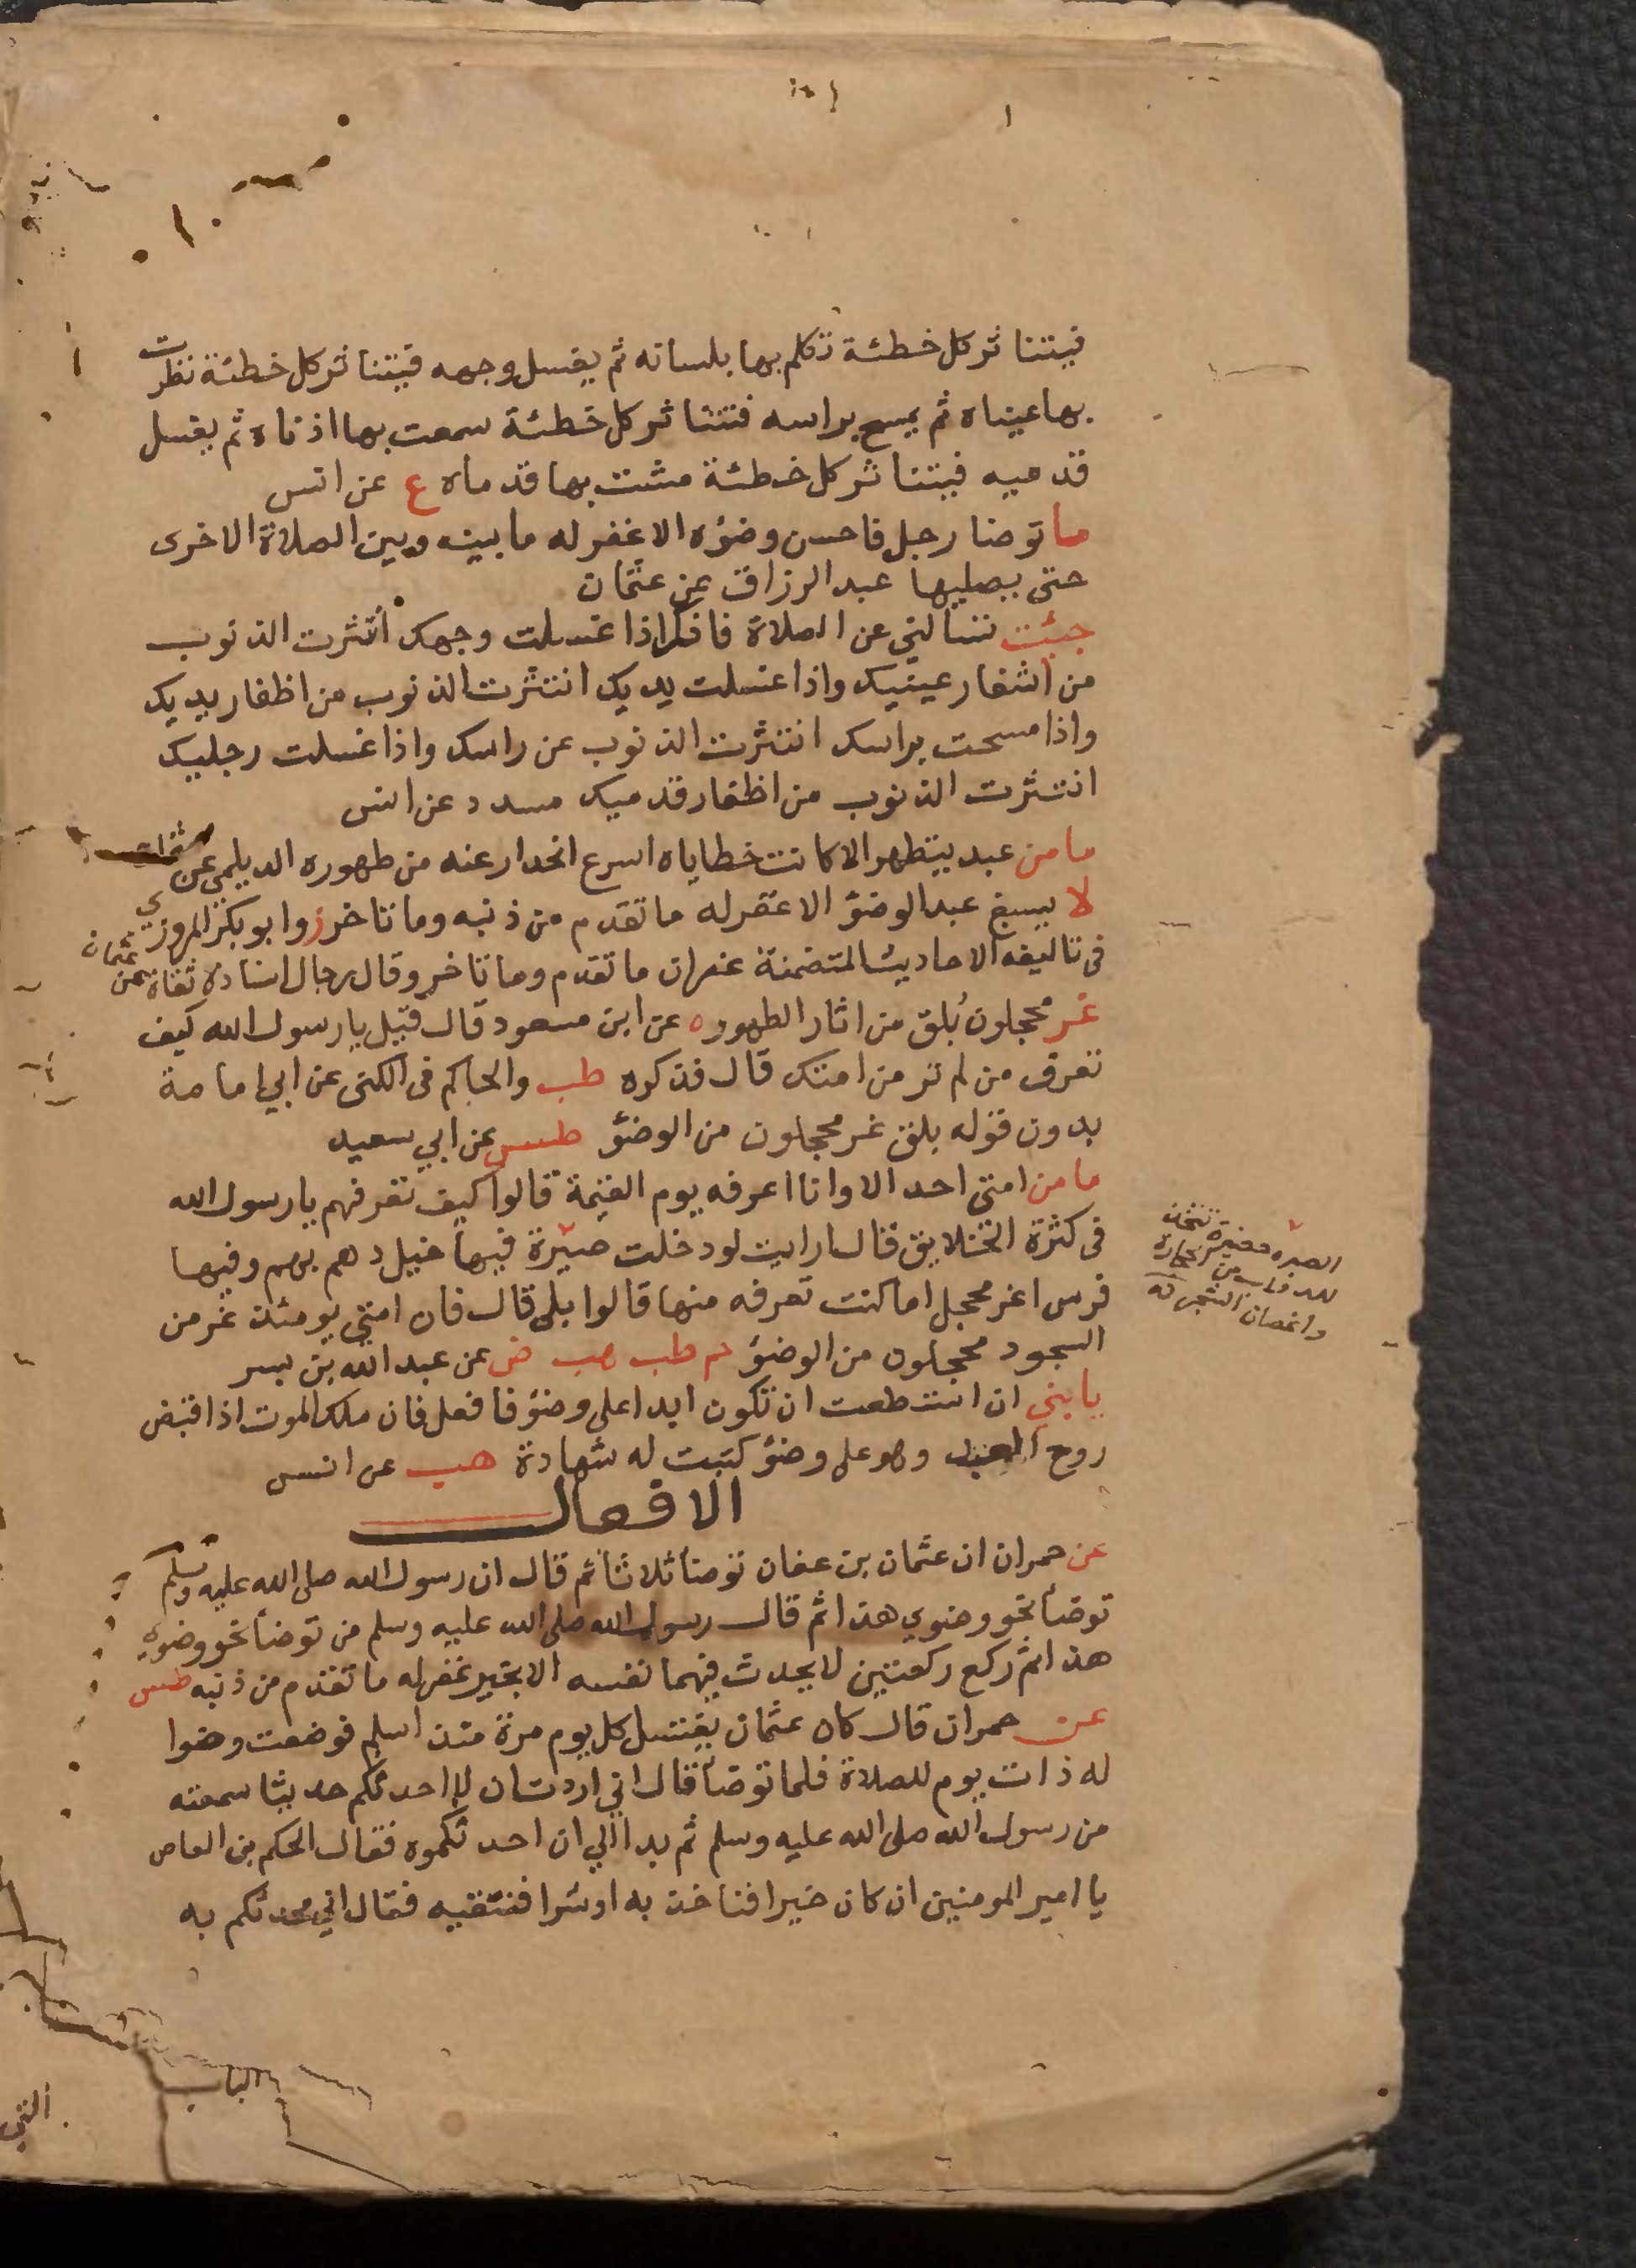 فيتناثر كل خطئة تكلم بها بلسانه ثم يغسل وجهه فيتناثر كل خطئة نظرت
بها عيناه ثم يمسح براسه فتتناثر كل خطئة سمعت بها اذناه ثم يغسل
قدميه فيتناثر كل خطئة مشت بها قدماه ع عن انس
ما توضا رجل فاحسن وضؤه الا غفر له ما بينه وبين الصلاة الاخرى
حتى يصليها عبد الرزاق عن عثمان
جئت تسالني عن الصلاة فانك اذا غسلت وجهك انتثرت الذنوب
من اشفار عينيك واذا غسلت يديك انتثرت الذنوب من اظفار يديك
واذا مسحت براسك انتثرت الذنوب عن راسك واذا غسلت رجليك
انتثرت الذنوب من اظفار قدميك مسدد عن انس
ما من عبد يتطهر الا كانت خطاياه اسرع انحدار عنه من طهوره الديلمي عن عثمان
لا يسبغ عبد الوضؤ الا غفر له ما تقدم من ذنبه وما تاخر ز وابو بكر المروزي
في تاليفه الاحاديث المتضمنة غفران ما تقدم وما تاخر وقال رجال اسناده ثقاة عن عثمان
غر محجلون بُلق من اثار الطهور ه عن ابن مسعود قال قيل يا رسول الله كيف
تعرف من لم تر من امتك قال فذكره طب والحاكم في الكنى عن ابي امامة
بدون قوله بلق غر محجلون من الوضؤ طس عن ابي سعيد
ما من امتي احد الا وانا اعرفه يوم القيمة قالوا كيف تعرفهم يا رسول الله
في كثرة الخلايق قال ارايت لو دخلت صيرة فيها خيل دهم بهم وفيها
فرس اغر محجل اما كنت تعرفه منها قالوا بلى قال فان امتي يومئذ غر من
السجود محجلون من الوضؤ حم طب هب ض عن عبد الله بن بسر
يا بني ان استطعت ان تكون ابدا على وضؤ فافعل فان ملك الموت اذا قبض
روح العبد وهو على وضؤ كتبت له شهادة هب عن انس
الصيره حضيرة تتخذ
للدواب من الحجارة
واغصان الشجر
الافعال
عن حمران ان عثمان بن عفان توضأ ثلاثا ثم قال ان رسول الله صلى الله عليه وسلم
توضأ نحو وضوي هذا ثم قال رسول الله صلى الله عليه وسلم من توضأ نحو وضوي
هذا ثم ركع ركعتين لا يحدث فيهما نفسه الا بخير غفر له ما تقدم من ذنبه طس
عن حمران قال كان عثمان يغتسل كل يوم مرة منذ اسلم فوضعت وضوا
له ذات يوم للصلاة فلما توضأ قال اني اردت ان لا احدثكم حديثا سمعته
من رسول الله صلى الله عليه وسلم ثم بدا الي ان احدثكموه فقال الحكم بن العاص
يا امير المومنين ان كان خيرا فناخذ به او شرا فنتقيه فقال اني محدثكم به
الباب
التي